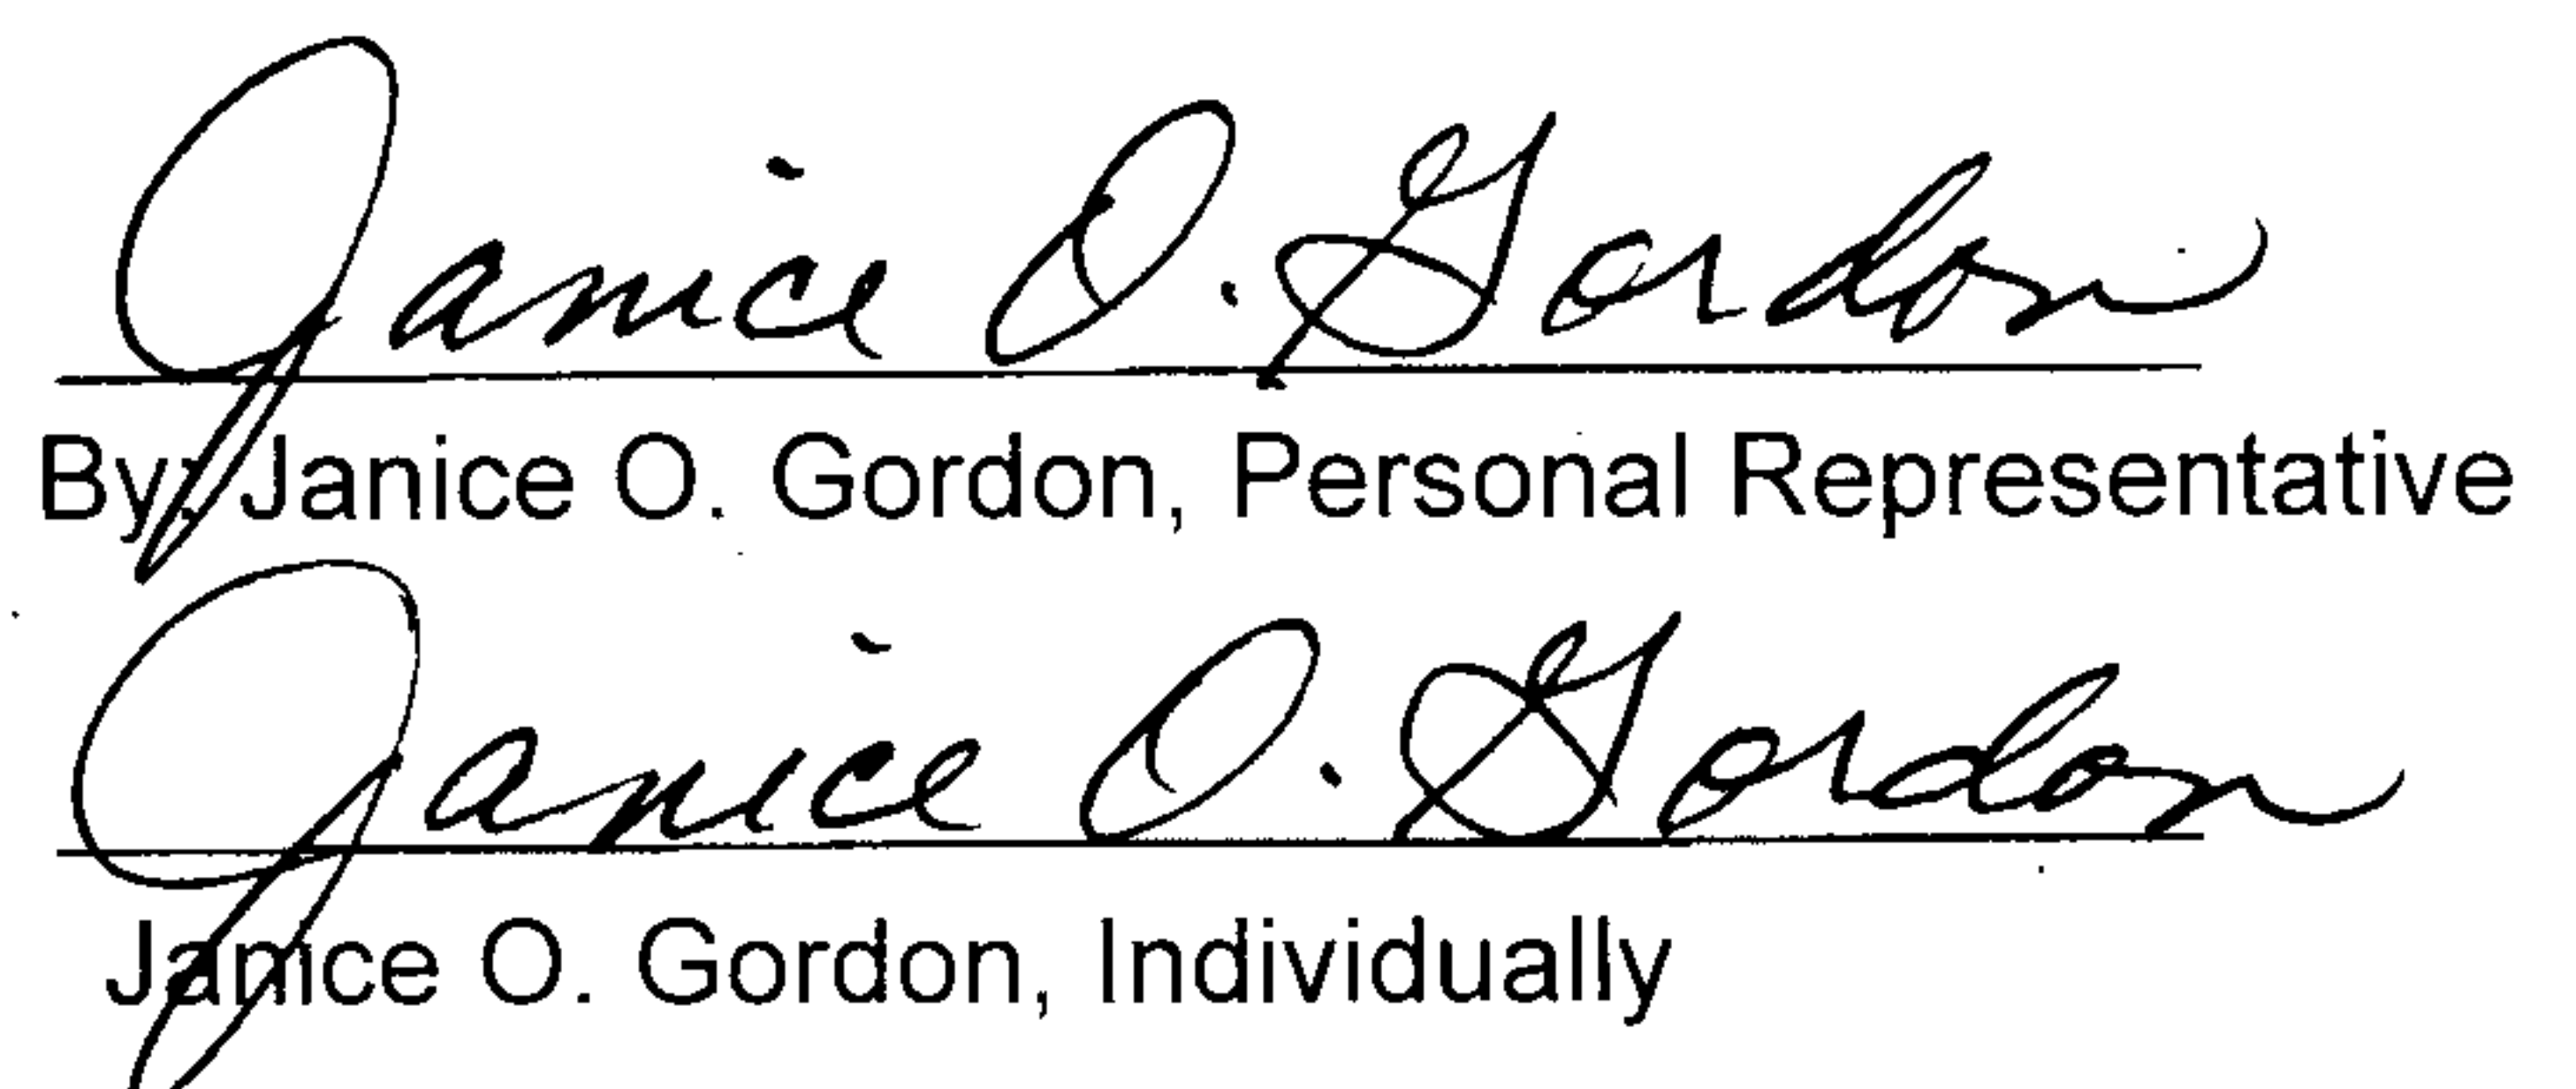 Janice O. Gordon
By: Janice O. Gordon, Personal Representative
Janice O. Gordon
Janice O. Gordon, Individually